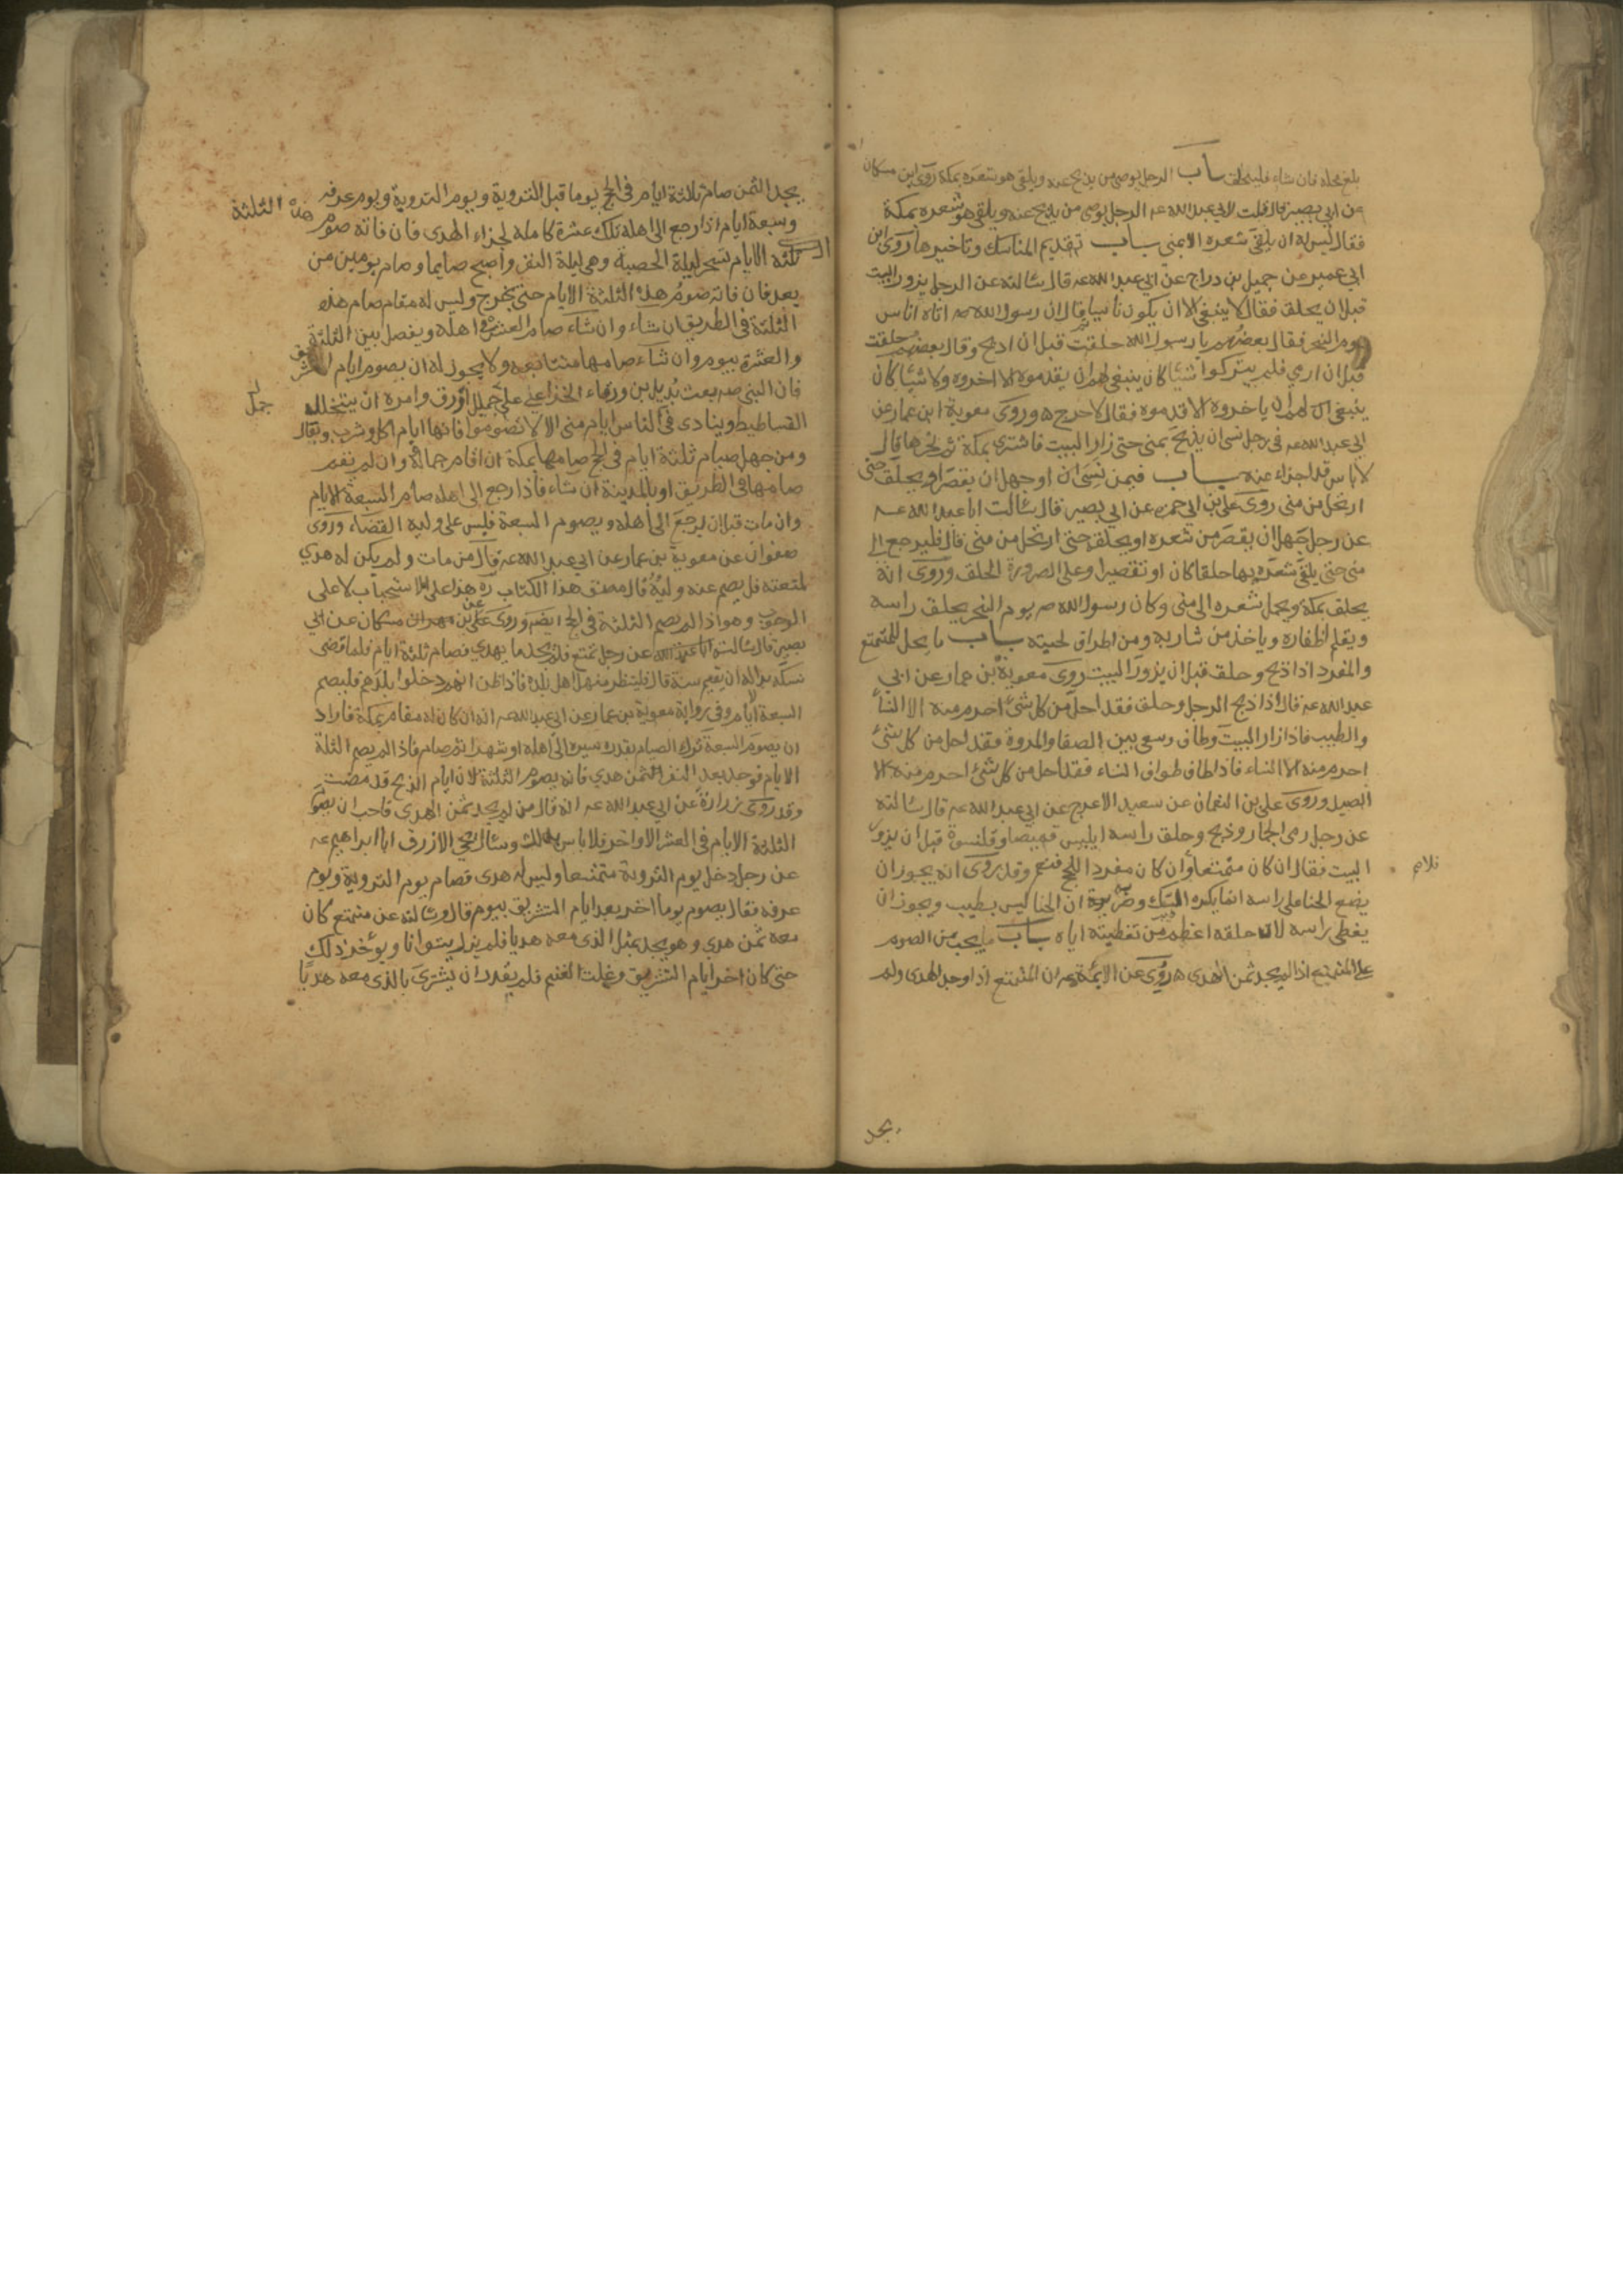 بلغ محله فان شاء فليحلق باب الرجل يوصي من يذبح عنه ويلقي هو شعره بمكة روى ابن مسكان
عن ابي بصير قال قلت لابي عبد الله عه الرجل يوصى من يذبح عنه ويلقى هو شعره بمكة
فقال ليس له ان يلقى شعره الا بمنى باب تقديم المناسك وتاخيرها روى ابن
ابي عمير عن جميل بن دراج عن ابي عبد الله عه قال سالته عن الرجل يزور البيت
قبل ان يحلق فقال لا ينبغى الا ان يكون ناسيا ثم قال ان رسول الله صه اتاه اناس
يوم النحر فقال بعضهم يا رسول الله حلقت قبل ان اذبح وقال بعضهم حلقت
قبل ان ارمي فلم يتركوا شيئا كان ينبغى لهم ان يقدموه الا اخروه ولا شيئا كان
ينبغى لهم ان ياخروه الا قدموه فقال لا حرج ه وروى معوية ابن عمار عن
ابي عبد الله عه فى رجل نسى ان يذبح بمنى حتى زار البيت فاشترى بمكة ثم نحرها قال
لا باس قد اجزاء عنه باب فيمن نسى ان او جهل ان يقصر او يحلق حتى
ارتحل من منى روى على بن ابي حمزه عن ابي بصير قال سالت ابا عبد الله عه
عن رجل جهل ان يقصر من شعره او يحلقه حتى ارتحل من منى قال فليرجع الى
منى حتى يلقى شعره بها حلقا كان او تقصيرا وعلى الصرورة الحلق وروى انه
يحلق بمكة ويحمل شعره الى منى وكان رسول الله صه يوم النحر يحلق راسه
ويقلم اظفاره وياخذ من شاربه ومن اطراف لحيته باب ما يحل للمتمتع
والمفرد اذا ذبح وحلق قبل ان يزور البيت روى معوية بن عمار عن ابي
عبد الله عه قال اذا ذبح الرجل وحلق فقد احل من كل شئ احرم منه الا النساء
والطيب فاذا زار البيت وطاف وسعى بين الصفا والمروة فقد احل من كل شئ
احرم منه الا النساء فاذا طاف طواف النساء فقد احل من كل شئ احرم منه الا
الصيد وروى على بن النعمان عن سعيد الاعرج عن ابي عبد الله عه قال سالته
عن رجل رمى الجمار وذبح وحلق راسه ايلبس قميصا وقلنسوة قبل ان يزور
البيت فقال ان كان متمتعا فلا وان كان مفردا للحج فنعم وقد روى انه يجوز ان
يضع الحنا على راسه انما يكره السك وضربه ان الحنا ليس بطيب ويجوز ان
يغطى راسه لان حلقه اعظم من تغطيته اياه باب ما يجب من الصوم
على المتمتع اذا لم يجد ثمن الهدى ه روى عن الائمة عه ان المتمتع اذا وجد الهدى ولم
يجد
يجد الثمن صام ثلاثة ايام فى الحج يوما قبل التروية ويوم التروية ويوم عرفه
وسبعة ايام اذا رجع الى اهله تلك عشرة كاملة لجزاء الهدى فان فاته صوم هذه الثلثة
ثلثه الايام تسحر ليلة الحصبة وهى ليلة النفر واصبح صايما وصام يومين من
بعد فان فاته صوم هذه الثلثة الايام حتى يخرج وليس له مقام صام هذه
الثلثة فى الطريق ان شاء وان شاء صام العشرة فى اهله ويفصل بين الثلثة
والعشرة بيوم وان شاء صامها متتابعه ولا يجوز له ان يصوم ايام التشريق
فان النبى صه بعث بديل بن ورقاء الخزاعى على جمل اورق وامره ان يتخلل
جمل
الفساطيط وينادى فى الناس ايام منى الا لا تصوموا فانها ايام اكل وشرب وبعال
ومن جهل صيام ثلثة ايام فى الحج صامها بمكة ان اقام جماله وان لم يقم
صامها فى الطريق او بالمدينة ان شاء فاذا رجع الى اهله صام السبعة الايام
وان مات قبل ان يرجع الى اهله ويصوم السبعة فليس على وليه القضاء وروى
صفوان عن معوية بن عمار عن ابي عبد الله عه قال من مات ولم يكن له هدي
لمتعته فليصم عنه وليه قال مصنف هذا الكتاب ره هذا على الاستحباب لا على
الوجوب وهو اذا لم يصم الثلثة فى الحج ايضم وروى على بن مهران عن مسكان عن ابي
بصير قال سالت ابا عبد الله عن رجل تمتع فلم يجد ما يهدي فصام ثلثة ايام فلما قضى
نسكه بدا له ان يقيم سنة قال فلينظر منهل اهل بلده فاذا ظن انهم دخلوا بلدهم فليصم
السبعة الايام وفى رواية معوية بن عمار عن ابي عبد الله عه انه ان كان له مقام بمكة فاراد
ان يصوم السبعة ترك الصيام بقدر سيره الى اهله او شهرا ثم صام فاذا لم يصم الثلثة
الايام فوجد بعد النفر الثمن هدي فانه يصوم الثلثة لان ايام الذبح قد مضت
وقد روى زرارة عن ابي عبد الله عه انه قال من لم يجد ثمن الهدى فاحب ان يصوم
الثلثة الايام فى العشر الاواخر فلا باس بذلك وسال يحيى الازرق ابا ابراهيم عه
عن رجل دخل يوم التروية متمتعا وليس له هدى فصام يوم التروية ويوم
عرفه فقال يصوم يوما اخر بعد ايام التشريق بيوم قال وسالته عن متمتع كان
معه ثمن هدي وهو يجد بمثل الذى معه هديا فلم يزل يتوانا ويؤخر ذلك
حتى كان اخر ايام التشريق وغلت الغنم فلم يقدر ان يشترى بالذى معه هديا